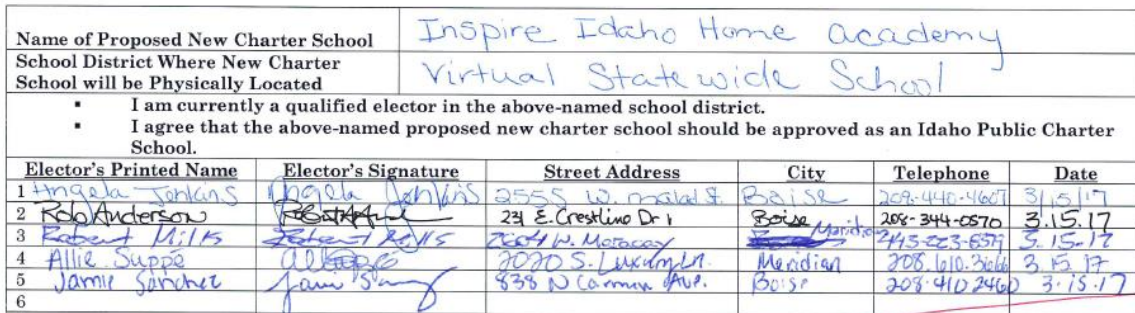 Name of Proposed New Charter School Inspire Idaho Home academy
School District Where New Charter School will be Physically Located Virtual Statewide School
▪ I am currently a qualified elector in the above-named school district.
▪ I agree that the above-named proposed new charter school should be approved as an Idaho Public Charter School.
Elector's Printed Name Elector's Signature Street Address City Telephone Date
1 Angela Jenkins Angela Jenkins 2555 W. malad St. Boise 208-440-4607 3/15/17
2 Rob Anderson 231 E. Crestline Dr Boise 208-344-0570 3.15.17
3 Robert Mills W. Meridian 3.15.17
4 Allie Suppe 2020 S. Luxury Ln. Meridian 208.610.3666 3.15.17
5 Jamie Sanchez 838 N Ave. Boise 208.410 2460 3.15.17
6